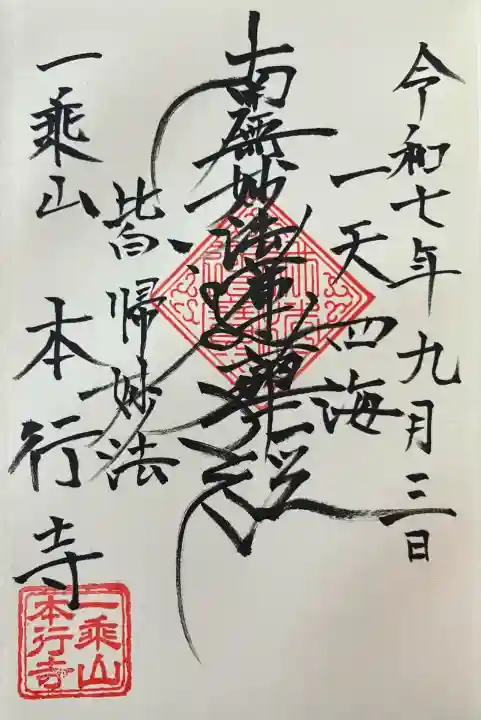 令和七年九月三日
一天四海
南無妙法蓮華経
皆帰妙法
一乗山
本行寺
一乗山
本行寺